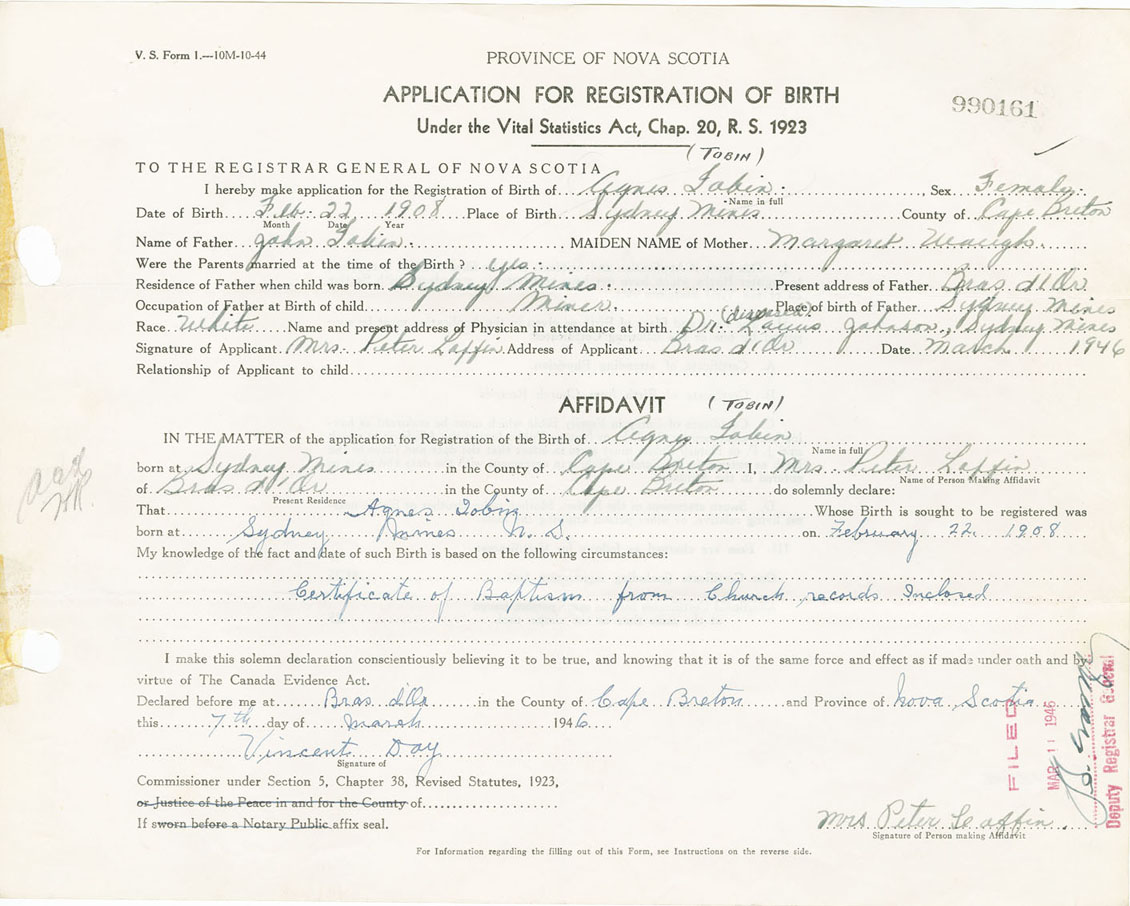 V. S. Form 1.—10M-10-44
PROVINCE OF NOVA SCOTIA
APPLICATION FOR REGISTRATION OF BIRTH
990161
Under the Vital Statistics Act, Chap. 20, R. S. 1923
(TOBIN)
TO THE REGISTRAR GENERAL OF NOVA SCOTIA
I hereby make application for the Registration of Birth of Agnes Tobin, Sex Female
Name in full
Date of Birth Feb. 22 1908 Place of Birth Sydney Mines County of Cape Breton
Month Date Year
Name of Father John Tobin MAIDEN NAME of Mother Margaret Waugh
Were the Parents married at the time of the Birth? yes
Residence of Father when child was born Sydney Mines Present address of Father Bras d'Or
Occupation of Father at Birth of child Miner Place of birth of Father Sydney Mines
(deceased)
Race White Name and present address of Physician in attendance at birth Dr. Johnson, Sydney Mines
Signature of Applicant Mrs. Peter Laffin Address of Applicant Bras d'Or Date March 1946
Relationship of Applicant to child
AFFIDAVIT (TOBIN)
IN THE MATTER of the application for Registration of the Birth of Agnes Tobin
Name in full
born at Sydney Mines in the County of Cape Breton I, Mrs. Peter Laffin
Name of Person Making Affidavit
of Bras d'Or in the County of Cape Breton do solemnly declare:
Present Residence
That Agnes Tobin Whose Birth is sought to be registered was
born at Sydney Mines N. S. on February 22 1908
My knowledge of the fact and date of such Birth is based on the following circumstances:
Certificate of Baptism from Church records Inclosed
I make this solemn declaration conscientiously believing it to be true, and knowing that it is of the same force and effect as if made under oath and by
virtue of The Canada Evidence Act.
Declared before me at Bras d'Or in the County of Cape Breton and Province of Nova Scotia
this 7th day of March 1946
Vincent Day
Signature of
Commissioner under Section 5, Chapter 38, Revised Statutes, 1923,
or Justice of the Peace in and for the County of
If sworn before a Notary Public affix seal.
Mrs Peter Laffin
Signature of Person making Affidavit
For Information regarding the filling out of this Form, see Instructions on the reverse side.
FILED
MAR 11 1946
Deputy Registrar General